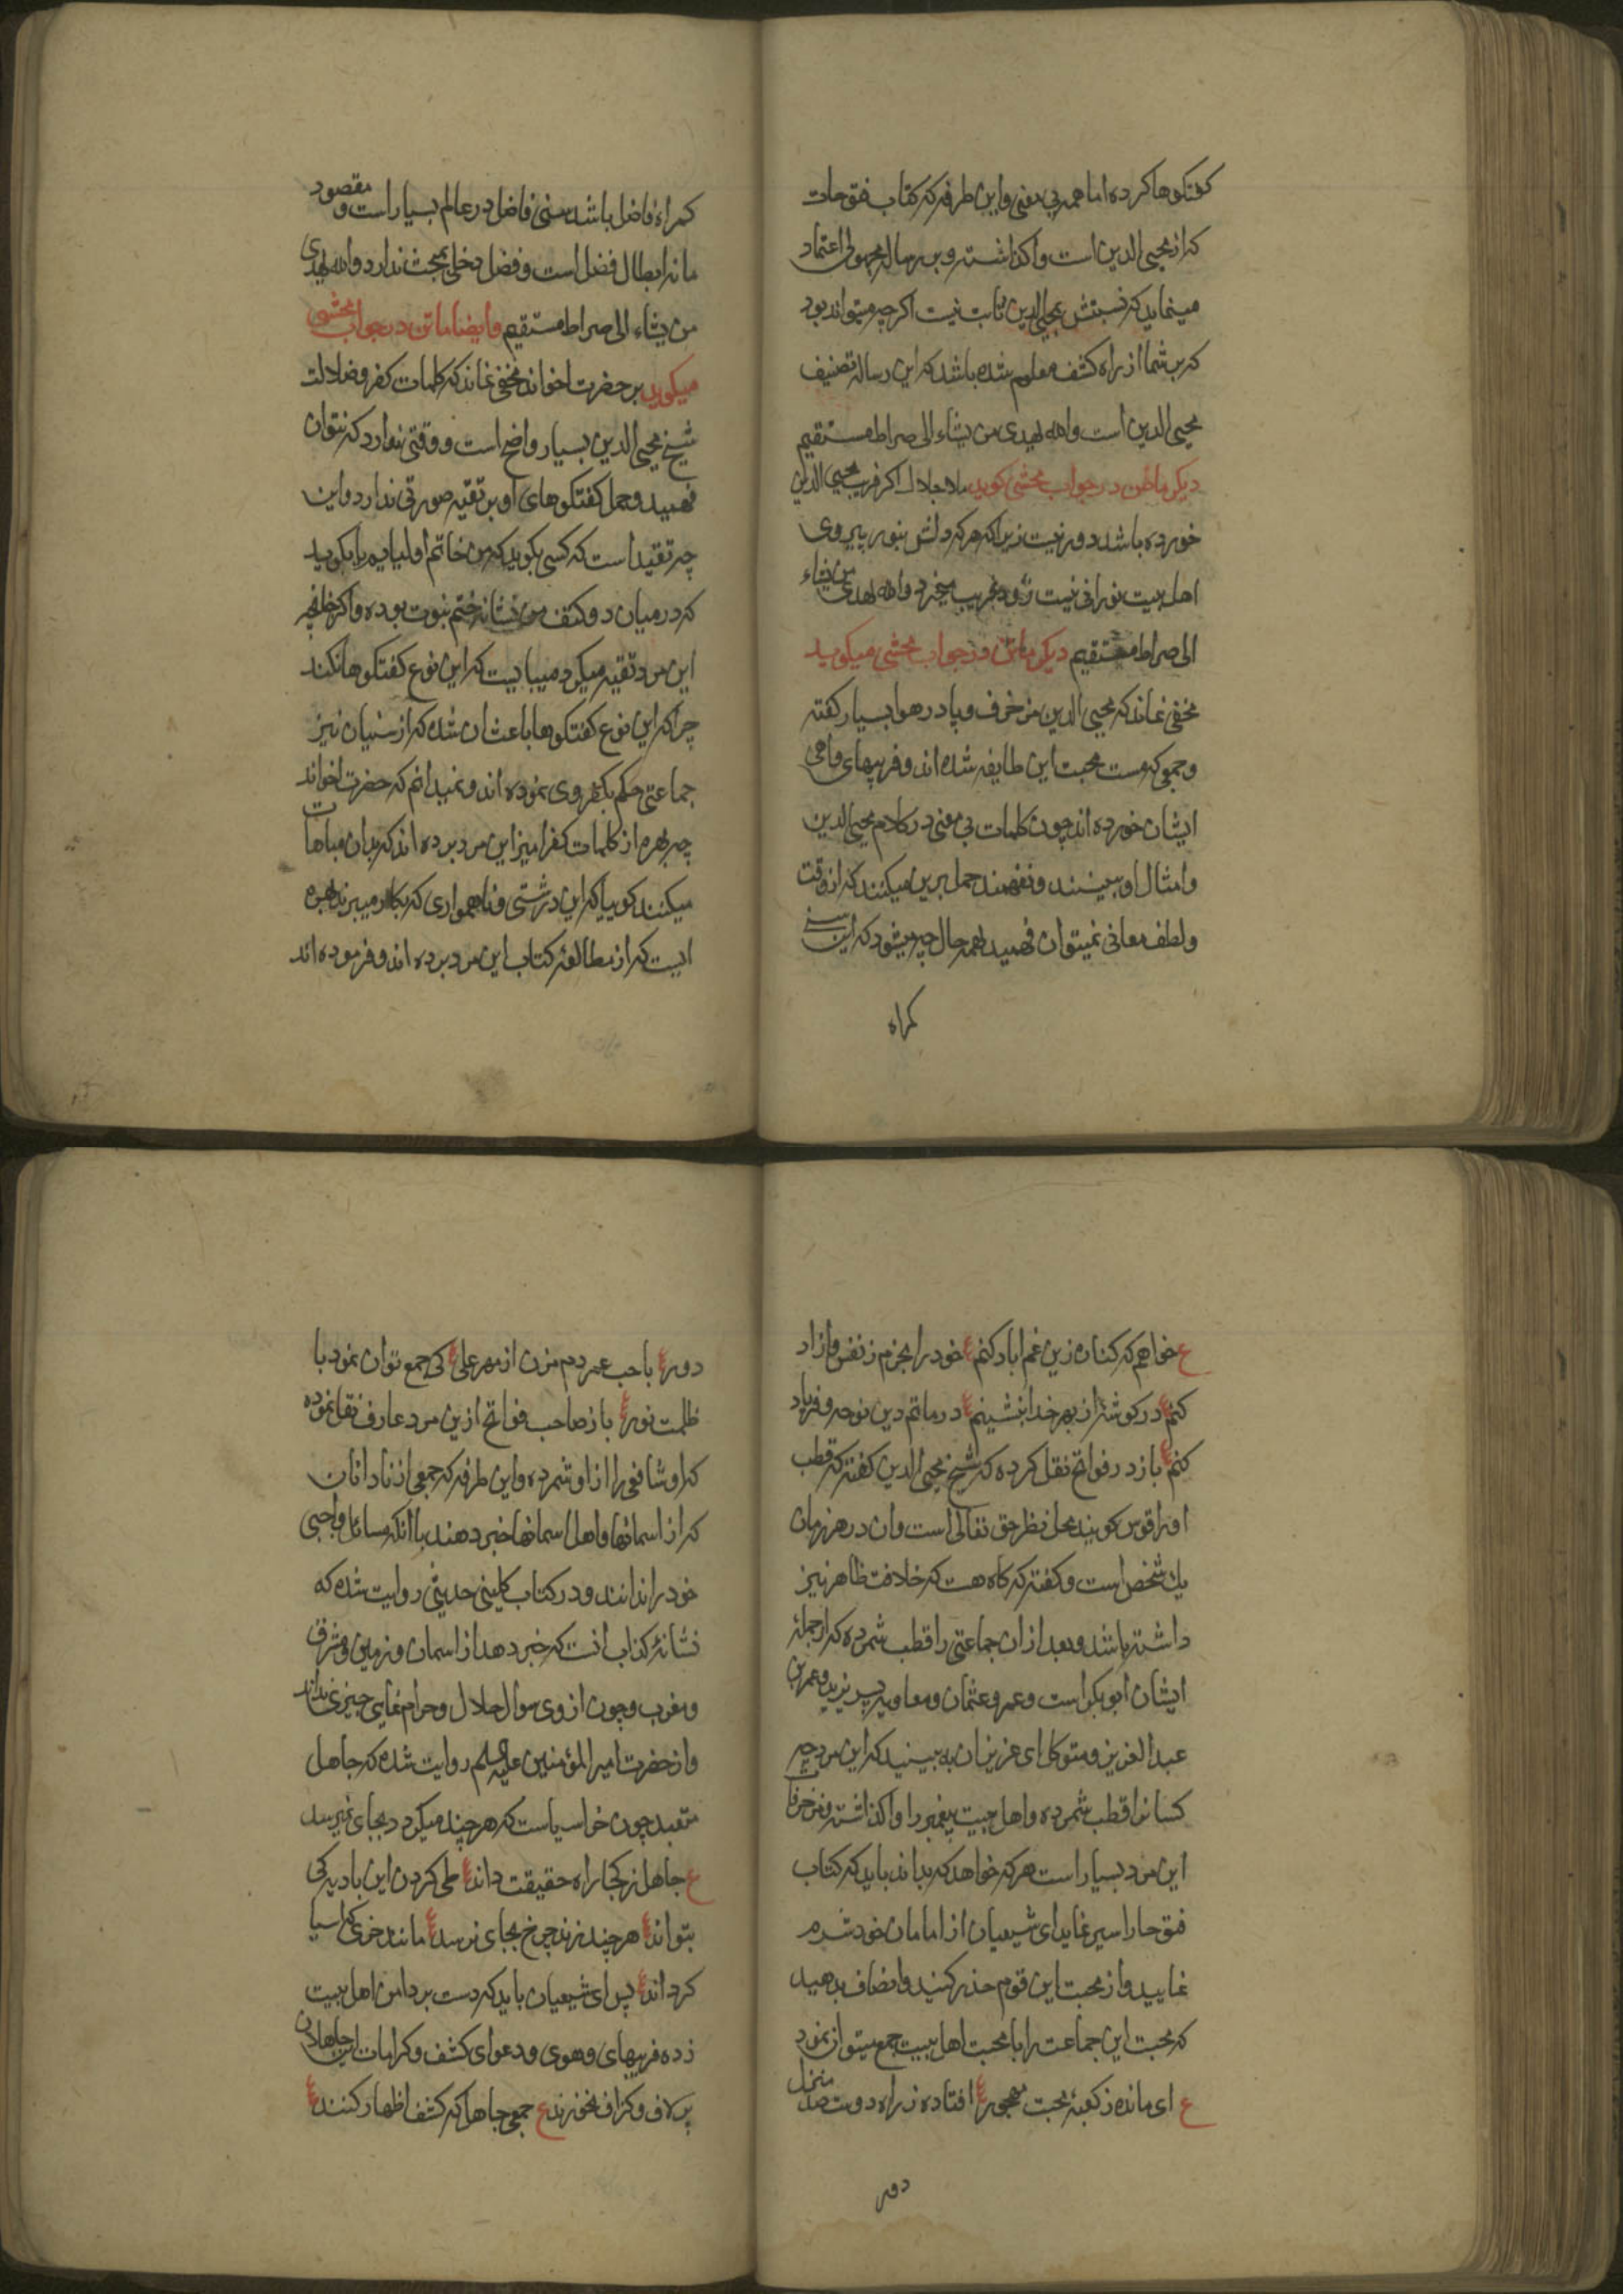 گفتگوها کرده اما همه بی معنی و این طرفه که کتاب فتوحات
که از محیی الدین است واگذاشته و برساله مجهولی اعتماد
مینماید که نسبتش بمحیی الدین ثابت نیست اگرچه میتواند بود
که بر شما از راه کشف معلوم شده باشد که این رساله تصنیف
محیی الدین است والله یهدی من یشاء الی صراط مستقیم
دیگر ماتن در جواب محشی گوید ملا جلال اگر فریب محیی الدین
خورده باشد دور نیست زیرا که هر که دلش بنور پیروی
اهل بیت نورانی نیست زود فریب میخورد والله یهدی من یشاء
الی صراط مستقیم دیگر ماتن در جواب محشی میگوید
مخفی نماند که محیی الدین مزخرف و پا در هوا بسیار گفته
و جمعی که مست محبت این طایفه شده اند و فریبهای واهی
ایشان خورده اند چون کلمات بی معنی در کلام محیی الدین
و امثال او ببینند و نفهمند حمل برین میکنند که از دقت
و لطف معانی نمیتوان فهمید بهمه حال چه میشود که این سنی
گمراه
گمراه فاضل باشد سنی فاضل در عالم بسیار است و مقصود
ما نه ابطال فضل است و فضل دخلی ببحث ندارد والله یهدی
من یشاء الی صراط مستقیم وایضا ماتن در جواب محشی
میگوید بر حضرت اخوند مخفی نماند که کلمات کفر و ضلالت
شیخ محیی الدین بسیار واضح است و دقتی ندارد که نتوان
فهمید و حمل گفتگوهای او بر تقیه صورتی ندارد و این
چه تقیه است که کسی بگوید که من خاتم اولیایم یا بگوید
که در میان دو کتف من نشانه ختم نبوت بوده و اگر چنانچه
این مرد تقیه میکرد میبایست که این نوع گفتگوها نکند
چرا که این نوع گفتگوها باعث ان شده که از سنیان نیز
جماعتی حکم بکفر وی نموده اند و نمیدانم که حضرت اخواند
چه بهره از کلمات کفرامیز این مرد برده اند که بدان مباهات
میکنند گوییا که این درشتی و ناهمواری که بکار میبرند بهره
ایست که از مطالعه کتاب این مرد برده اند و فرموده اند
ع خواهم که کناره زین غم اباد کنم ع خود را بحزم ز نفس دازاد
کنم ع در گوشه از بهر خدا بنشینم ع در ماتم دین نوحه و فریاد
کنم ع باز در فواتح نقل کرده که شیخ محیی الدین گفته که قطب
او را قوس گویند محل نظر حق تعالی است و ان در هر زمان
یک شخص است و گفته که گاه هست که خلافت ظاهر نیز
داشته باشد و بعد از ان جماعتی را قطب شمرده که از جمله
ایشان ابو بکر است و عمر و عثمان و معاویه پسر یزید و عمر بن
عبدالعزیز و متوکل ای عزیزان به بینید که این مرد چه
کسانرا قطب شمرده و اهل بیت پیغمبر را واگذاشته و مزخرفات
این مرد بسیار است هر که خواهد که بداند باید که کتاب
فتوحات را سیر نماید ای شیعیان از امامان خود شرم
نمایید و از محبت این قوم حذر کنید و انصاف بدهید
که محبت این جماعت را با محبت اهل بیت جمع میتوان نمود
ع ای مانده ز کعبه محبت مهجور ع افتاده ز راه دوست صد منزل
دور
دور ع با حب عمر دم مزن از مهر علی ع کی جمع توان نمود با
ظلمت نور ع باز صاحب فواتح ازین مرد عارف نقل نموده
که او شافعی را از اوتاد شمرده و این طرفه که جمعی از نادانان
که از اسمانها و اهل اسمانها خبر دهند با انکه مسائل واجبی
خود را ندانند و در کتاب کلینی حدیثی روایت شده که
نشانه کذاب انست که خبر دهد از اسمان و زمین و مشرق
و مغرب و چون از وی سوال حلال و حرام نمایی چیزی نداند
و از حضرت امیر المؤمنین علیه السلم روایت شده که جاهل
متعبد چون خر اسیاست که هر چند میگردد بجای نمیرسد
ع جاهل ز کجا راه حقیقت داند ع طی کردن این بادیه کی
بتواند ع هر چند زند چرخ بجای نرسد ع مانند خری که اسیا
گرداند ع پس ای شیعیان باید که دست بر دامن اهل بیت
زده فریبهای و هوی و دعوای کشف و کرامات این جاهلان
پر لاف و گزاف نخورند ع جمعی جاهل که کشف اظهار کنند ع